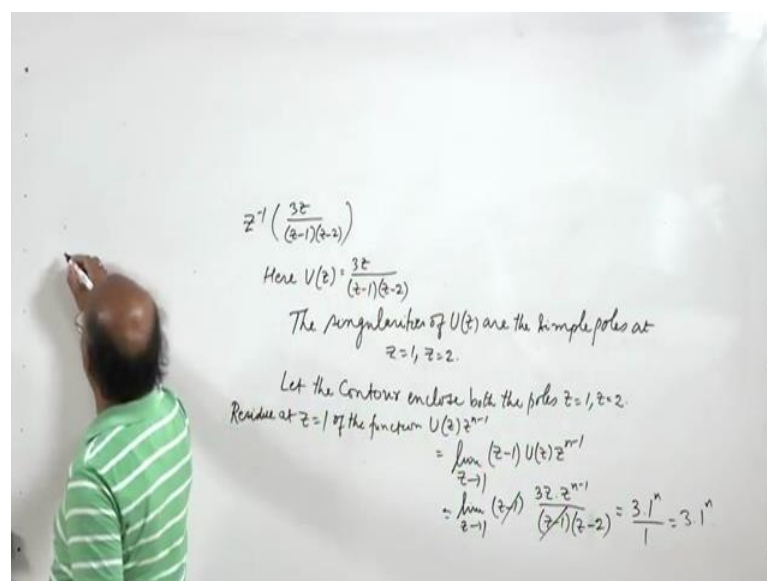 Z⁻¹ ( 3z / (z-1)(z-2) )
Here U(z) = 3z / (z-1)(z-2)
The singularities of U(z) are the simple poles at
z=1, z=2.
Let the Contour enclose both the poles z=1, z=2.
Residue at z=1 of the function U(z) zⁿ⁻¹
= lim z→1 (z-1) U(z) zⁿ⁻¹
= lim z→1 (z-1) 3z.zⁿ⁻¹ / (z-1)(z-2) = 3.1ⁿ / 1 = 3.1ⁿ